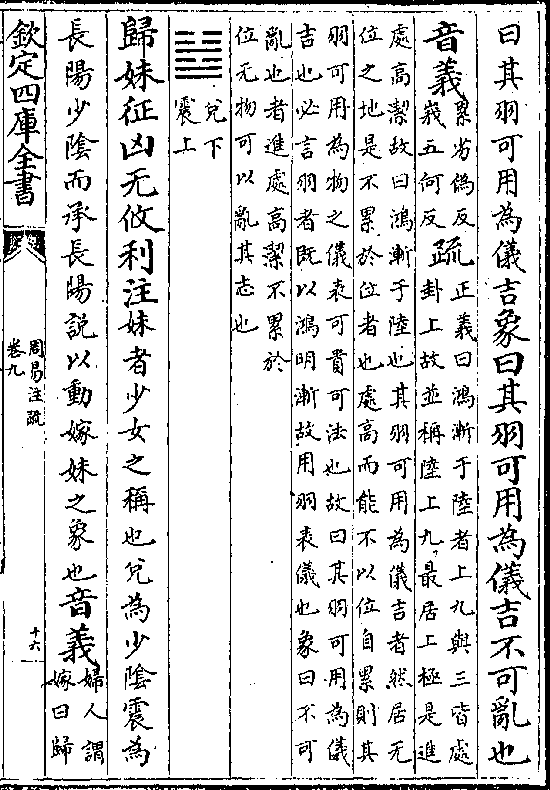 曰其羽可用為儀吉象曰其羽可用為儀吉不可亂也
音義累劣偽反
峩五何反疏正義曰鴻漸于陸者上九與三皆處
卦上故並稱陸上九最居上極是進
處高潔故曰鴻漸于陸也其羽可用為儀吉者然居无
位之地是不累於位者也處高而能不以位自累則其
羽可用為物之儀表可貴可法也故曰其羽可用為儀
吉也必言羽者既以鴻明漸故用羽表儀也象曰不可
亂也者進處高潔不累於
位无物可以亂其志也
兌下
震上
歸妹征凶无攸利注妹者少女之稱也兌為少陰震為
長陽少陰而承長陽說以動嫁妹之象也音義婦人謂
嫁曰歸
欽定四庫全書
周易注疏
卷九
十六